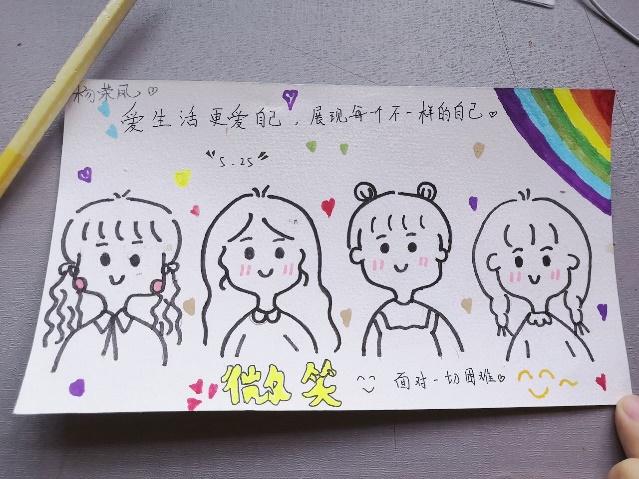 杨荣凤
爱生活更爱自己，展现每个不一样的自己
"5.25"
微笑 面对一切困难